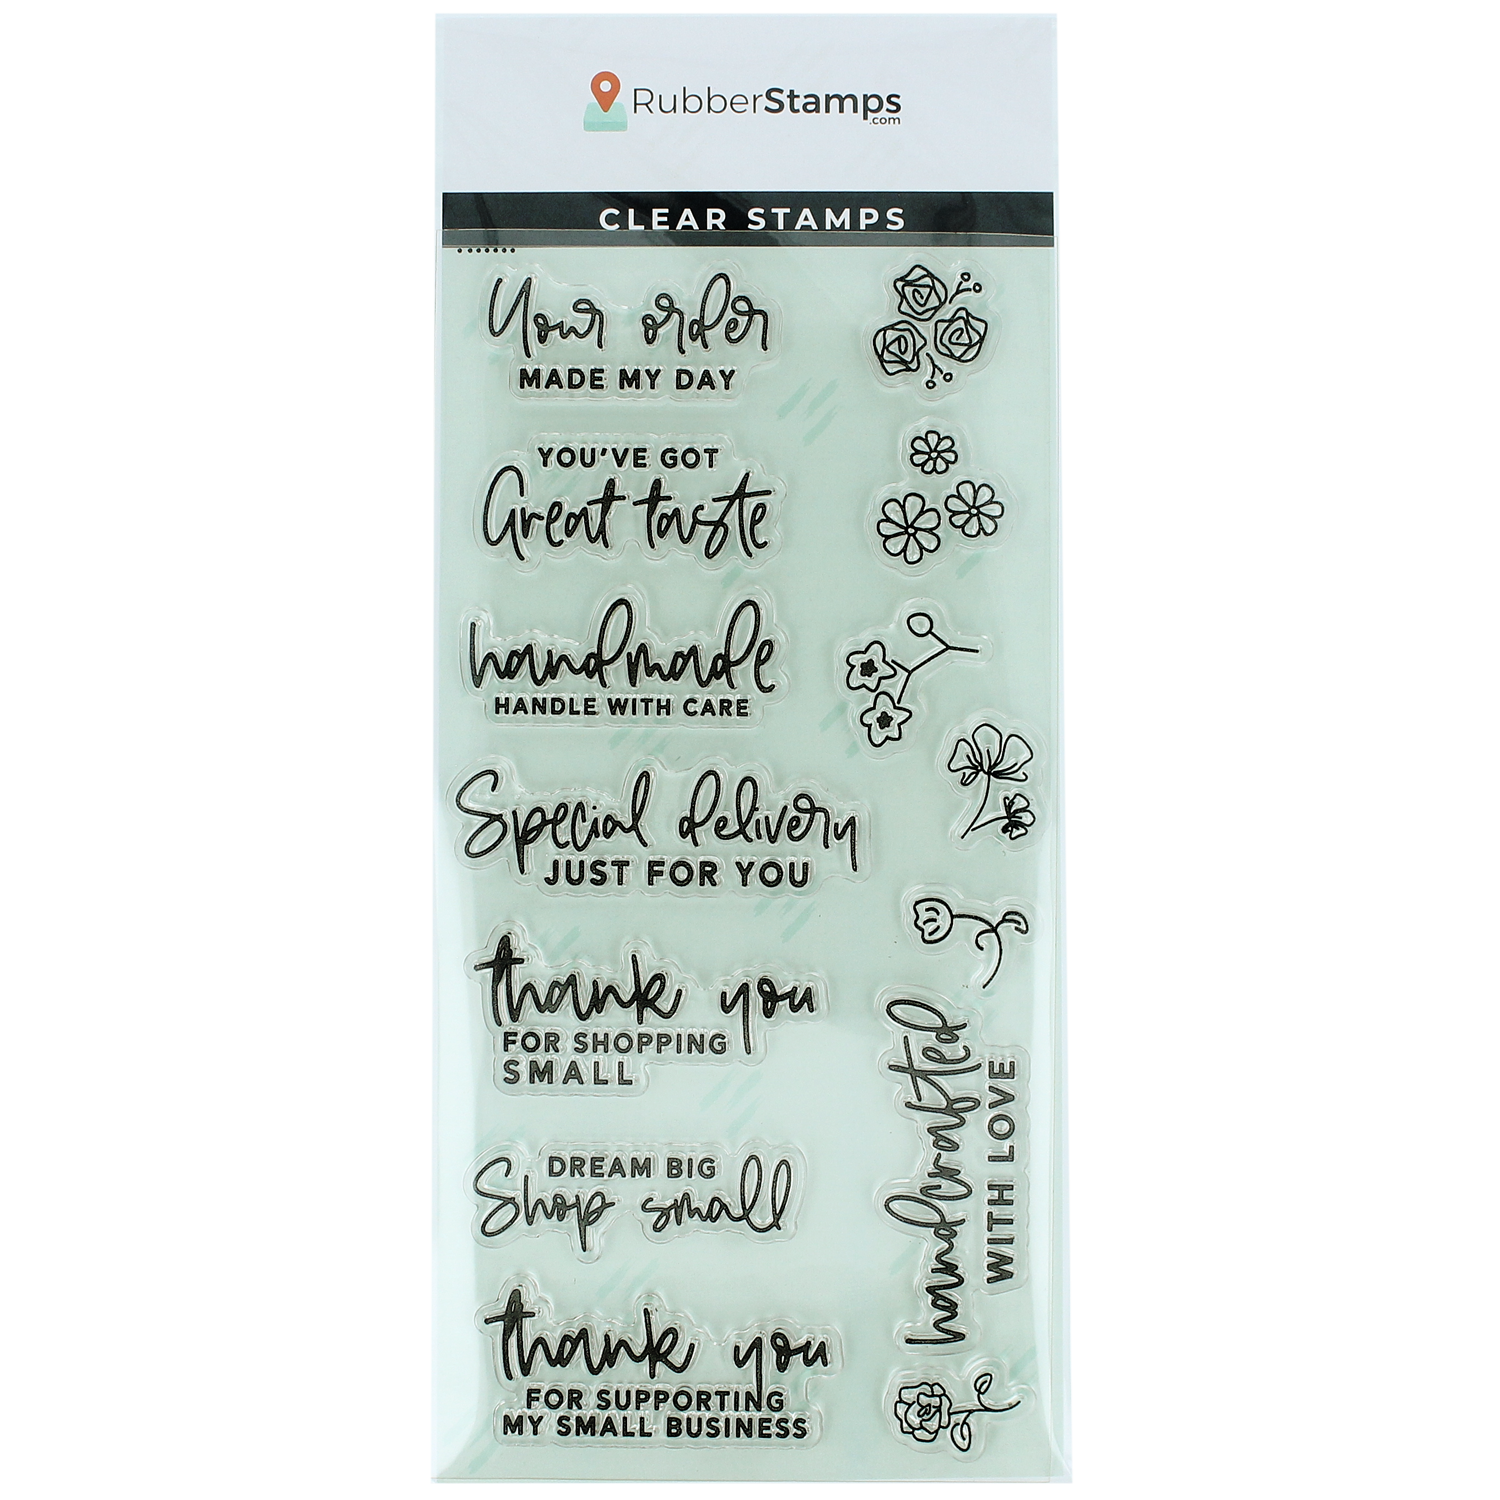 RubberStamps
.com
CLEAR STAMPS
Your order
MADE MY DAY
YOU'VE GOT
Great taste
handmade
HANDLE WITH CARE
Special delivery
JUST FOR YOU
thank you
FOR SHOPPING
SMALL
DREAM BIG
Shop small
thank you
FOR SUPPORTING
MY SMALL BUSINESS
handcrafted
WITH LOVE